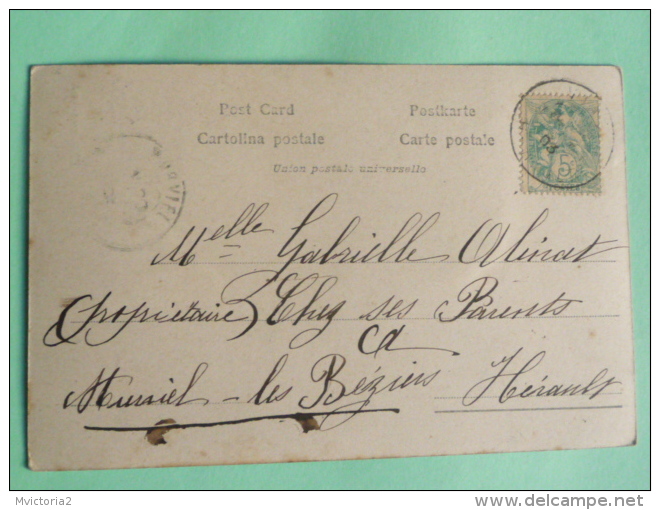 Post Card Postkarte
Cartolina postale Carte postale
Union postale universelle
5
Melle Gabrielle Alinat
(propriétaire) Chez ses Parents
cd
les Béziers Hérault
Mvictoria2
delcampe.net